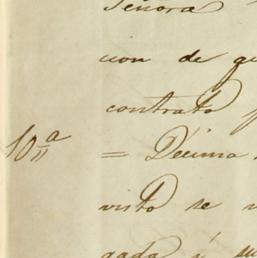 Señora
cion de qu
contrato
10ª = Décima
visto se
gada